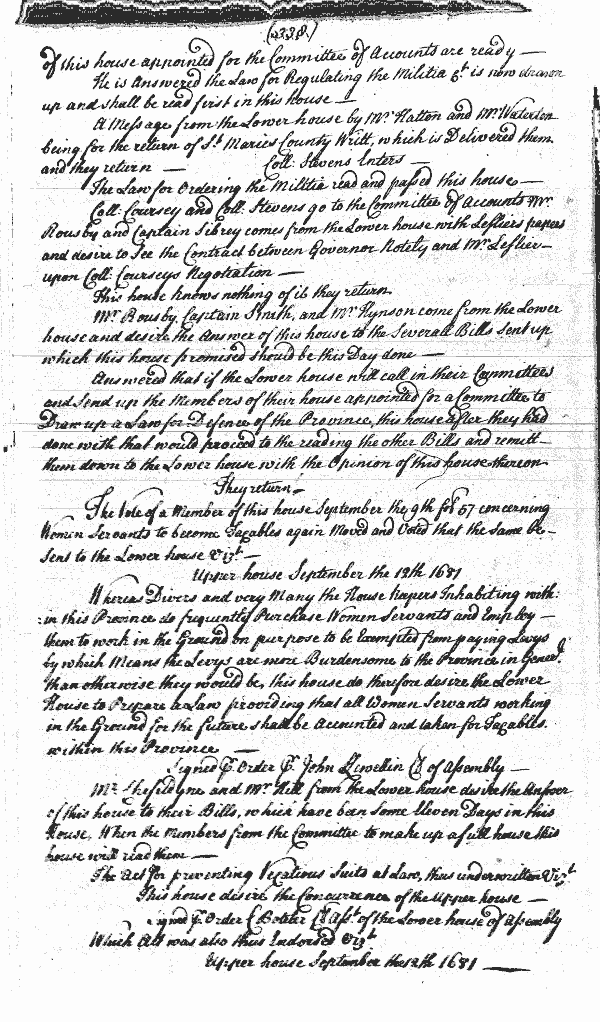 (338)
of this house appointed for the Committee of Accounts are ready —
He is Answered the Law for Regulating the Militia &ct is now drawn
up and shall be read first in this house —
A Message from the Lower house by Mr Hatton and Mr Waterton
being for the return of St Maries County Writt, which is Delivered them
and they return — Coll: Stevens Enters —
The Law for Ordering the Militia read and passed this house —
Coll: Coursey and Coll: Stevens go to the Committee of Accounts Mr
Rousby and Captain Sibrey comes from the Lower house with Lefliers papers
and desire to See the Contract between Governor Notely and Mr Leflier —
upon Coll: Courseys Negotiation —
This house knows nothing of it they return
Mr Rousby, Captain Smith, and Mr Hynson come from the Lower
house and desire the Answer of this house to the Severall Bills sent up
which this house promised should be this Day done —
Answered that if the Lower house will call in their Committees
and Send up the Members of their house appointed for a Committee to
Draw up a Law for Defence of the Province, this house after they had
done with that would proceed to the reading the other Bills and remitt —
them down to the Lower house with the Opinion of this house thereon
They return —
The Vote of a Member of this house September the 9th fol 57 concerning
Women Servants to become Taxables again Moved and Voted that the same be —
Sent to the Lower house Vizt —
Upper house September the 12th 1681
Whereas Divers and very Many the House keepers Inhabiting with:
in this Province do frequently Purchase Women Servants and Employ —
them to work in the Ground on purpose to be Exempted from paying Levys
by which Means the Levys are more Burdensome to the Province in Generl
than otherwise they would be, this house do therefore desire the Lower
House to Prepare a Law providing that all Women Servants working
in the Ground for the future shall be Accounted and taken for Taxables
within this Province —
Signed P. Order P. John Llewellin Cl of Assembly —
Mr Chesildyne and Mr Hill from the Lower house desire the Answer
of this house to their Bills, which have been some Eleven Days in this
House, When the Members from the Committee to make up a full house this
house will read them —
The Act for preventing Vexatious Suits at Law, thus underwritten Vizt
This house desire the Concurrence of the Upper house —
Signed P. Order C Boteler Cl Asst of the Lower house of Assembly
Which Act was also thus Endorsed Vizt
Upper house September the 12th 1681 —